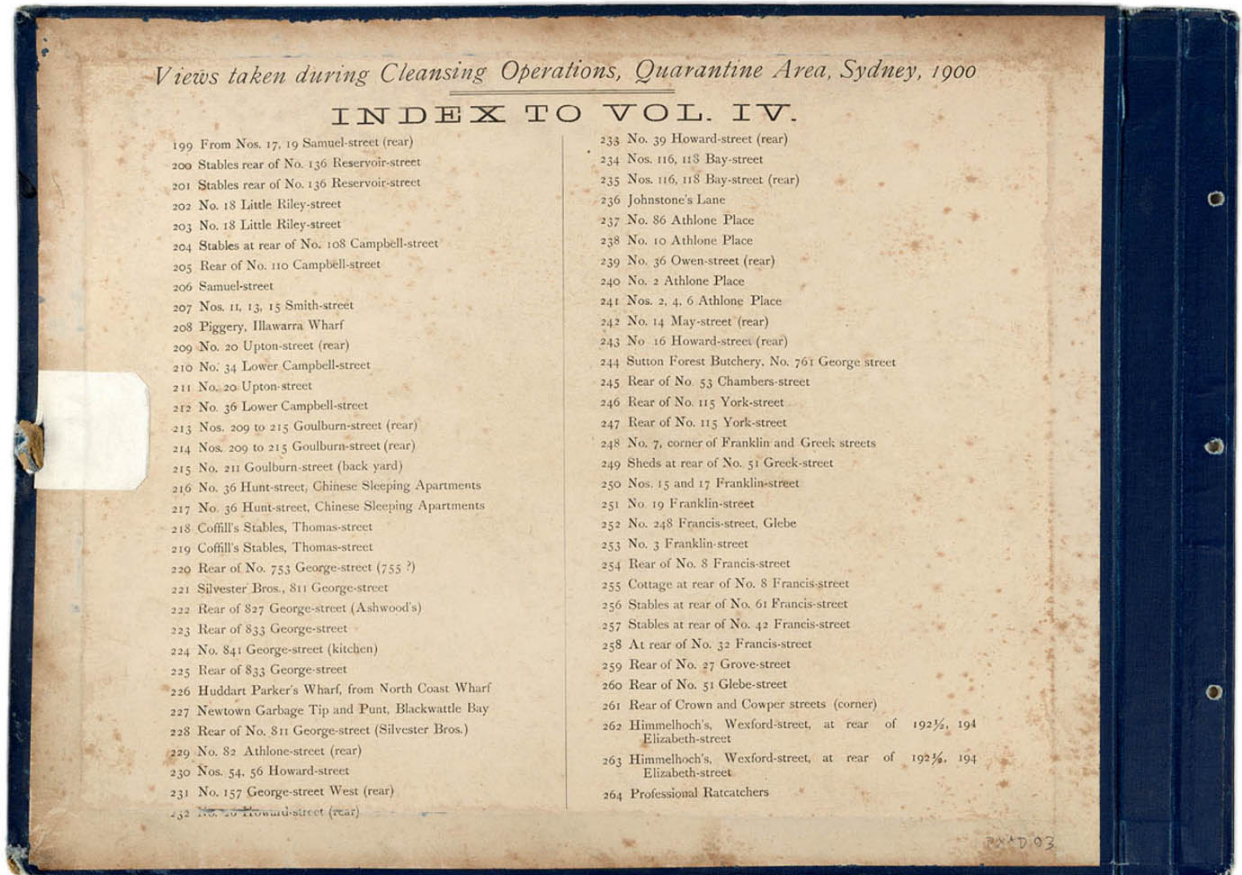 Views taken during Cleansing Operations, Quarantine Area, Sydney, 1900
INDEX TO VOL. IV.
199 From Nos. 17, 19 Samuel-street (rear)
200 Stables rear of No. 136 Reservoir-street
201 Stables rear of No. 136 Reservoir-street
202 No. 18 Little Riley-street
203 No. 18 Little Riley-street
204 Stables at rear of No. 108 Campbell-street
205 Rear of No. 110 Campbell-street
206 Samuel-street
207 Nos. 11, 13, 15 Smith-street
208 Piggery, Illawarra Wharf
209 No. 20 Upton-street (rear)
210 No. 34 Lower Campbell-street
211 No. 20 Upton-street
212 No. 36 Lower Campbell-street
213 Nos. 209 to 215 Goulburn-street (rear)
214 Nos. 209 to 215 Goulburn-street (rear)
215 No. 211 Goulburn-street (back yard)
216 No. 36 Hunt-street, Chinese Sleeping Apartments
217 No. 36 Hunt-street, Chinese Sleeping Apartments
218 Coffill's Stables, Thomas-street
219 Coffill's Stables, Thomas-street
220 Rear of No. 753 George-street (755 ?)
221 Silvester Bros., 811 George-street
222 Rear of 827 George-street (Ashwood's)
223 Rear of 833 George-street
224 No. 841 George-street (kitchen)
225 Rear of 833 George-street
226 Huddart Parker's Wharf, from North Coast Wharf
227 Newtown Garbage Tip and Punt, Blackwattle Bay
228 Rear of No. 811 George-street (Silvester Bros.)
229 No. 82 Athlone-street (rear)
230 Nos. 54, 56 Howard-street
231 No. 157 George-street West (rear)
232 No. Howard-street (rear)
233 No. 39 Howard-street (rear)
234 Nos. 116, 118 Bay-street
235 Nos. 116, 118 Bay-street (rear)
236 Johnstone's Lane
237 No. 86 Athlone Place
238 No. 10 Athlone Place
239 No. 36 Owen-street (rear)
240 No. 2 Athlone Place
241 Nos. 2, 4, 6 Athlone Place
242 No. 14 May-street (rear)
243 No 16 Howard-street (rear)
244 Sutton Forest Butchery, No. 761 George street
245 Rear of No. 53 Chambers-street
246 Rear of No. 115 York-street
247 Rear of No. 115 York-street
248 No. 7, corner of Franklin and Greek streets
249 Sheds at rear of No. 51 Greek-street
250 Nos. 15 and 17 Franklin-street
251 No. 19 Franklin-street
252 No. 248 Francis-street, Glebe
253 No. 3 Franklin-street
254 Rear of No. 8 Francis-street
255 Cottage at rear of No. 8 Francis-street
256 Stables at rear of No. 61 Francis-street
257 Stables at rear of No. 42 Francis-street
258 At rear of No. 32 Francis-street
259 Rear of No. 27 Grove-street
260 Rear of No. 51 Glebe-street
261 Rear of Crown and Cowper streets (corner)
262 Himmelhoch's, Wexford-street, at rear of 192½, 194
Elizabeth-street
263 Himmelhoch's, Wexford-street, at rear of 192½, 194
Elizabeth-street
264 Professional Ratcatchers